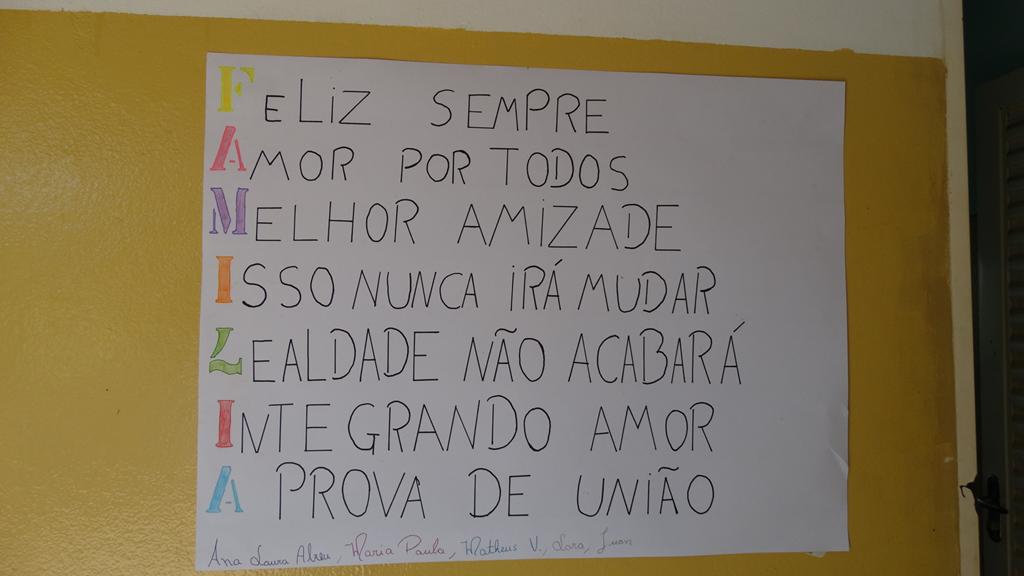 FELIZ SEMPRE
AMOR POR TODOS
MELHOR AMIZADE
ISSO NUNCA IRÁ MUDAR
LEALDADE NÃO ACABARÁ
INTEGRANDO AMOR
A PROVA DE UNIÃO
Ana Laura Abreu, Maria Paula, Matheus V., Lara, Juan